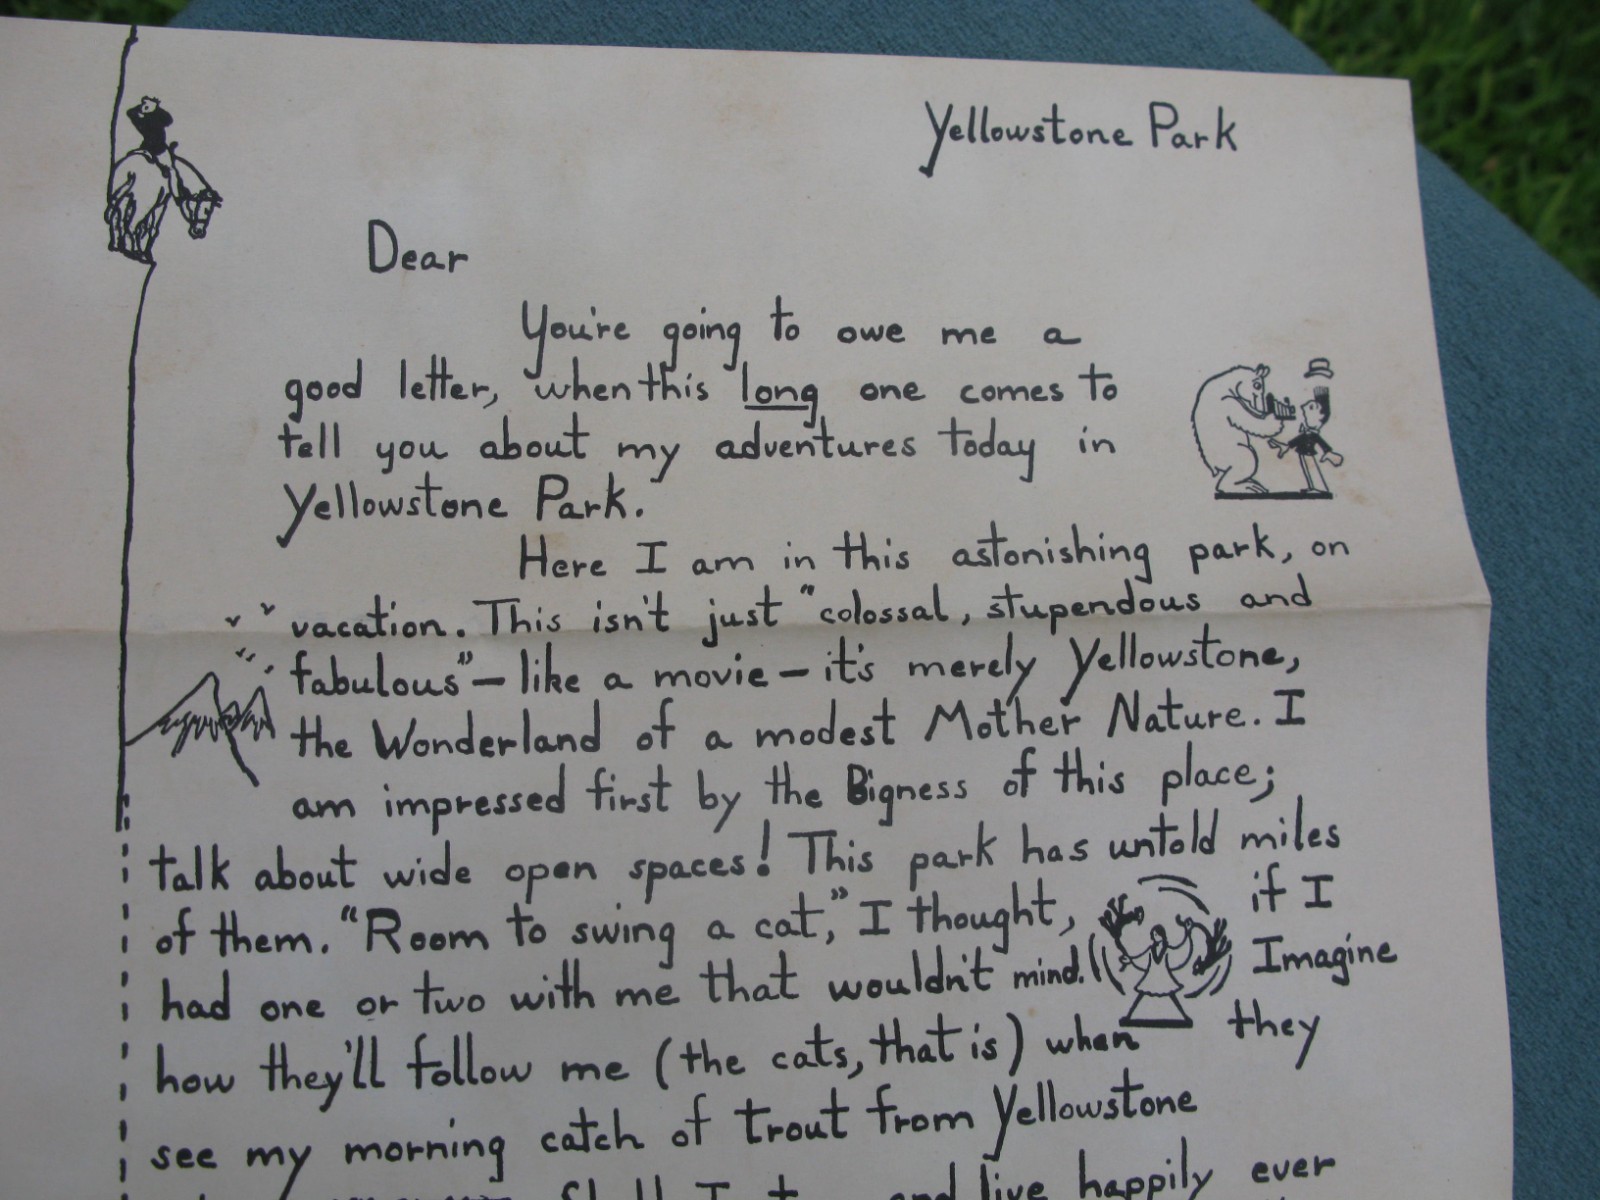 Yellowstone Park
Dear
You're going to owe me a
good letter, when this long one comes to
tell you about my adventures today in
Yellowstone Park.
Here I am in this astonishing park, on
vacation. This isn't just "colossal, stupendous and
fabulous" — like a movie — it's merely Yellowstone,
the Wonderland of a modest Mother Nature. I
am impressed first by the Bigness of this place;
talk about wide open spaces! This park has untold miles
of them. "Room to swing a cat," I thought, if I
had one or two with me that wouldn't mind. Imagine
how they'll follow me (the cats, that is) when they
see my morning catch of trout from Yellowstone
and live happily ever